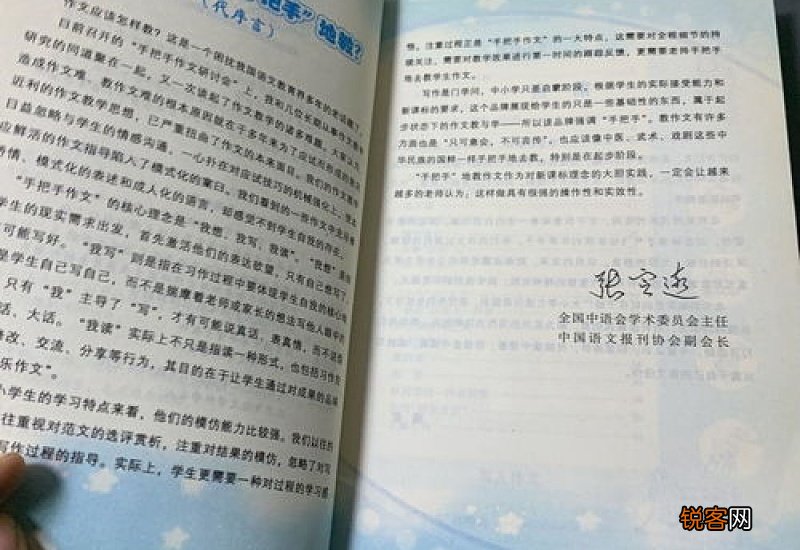 把手”地教？
（代序言）
作文应该怎样教？这是一个困扰我国语文教育界多年的老话题了。
目前召开的“手把手作文研讨会”上，我和几位长期从事作文教学
研究的同道聚在一起，又一次谈起了作文教学的诸多难题。大家认为
造成作文难、教作文难的根本原因就在于多年来为了应试而形成的急功
近利的作文教学思想，已严重扭曲了作文的本来面目。我们的作文教学
日益忽略与学生的情感沟通，一心扑在对应试技巧的机械强化上，使本
应鲜活的作文指导陷入了模式化的窠臼。我们看到的一些作文中充斥着
情、模式化的表述和成人化的语言，却感觉不到学生自我的存在。
“手把手作文”的核心理念是“我想，我写，我读”。“我想”
学生的现实需求出发，首先激活他们的表达欲望，只有自己想写了，
可能写好。“我写”则是指在习作过程中要体现学生自我的核心
是学生自己写自己，而不是揣摩着老师或家长的想法写他人眼中的
只有“我”主导了“写”，才有可能说真话、表真情，而不说
话、大话。“我读”实际上不只是指读一种形式，也包括习作后
修改、交流、分享等行为，其目的在于让学生通过对成果的品味
乐作文”。
小学生的学习特点来看，他们的模仿能力比较强。我们以往的
往重视对范文的选评赏析，注重对结果的模仿，忽略了对写
写作过程的指导。实际上，学生更需要一种对过程的学习
悟。注重过程正是“手把手作文”的一大特点，这需要对全程细节的持
续关注，需要对教学效果进行第一时间的跟踪反馈，更需要老师手把手
地去教学生作文。
写作是门学问，中小学只是启蒙阶段，根据学生的实际接受能力和
新课标的要求，这个品牌展现给学生的只是一些基础性的东西，属于起
步状态下的作文教与学——所以该品牌强调“手把手”。教作文有许多
方面也是“只可意会，不可言传”，也应该像中医、武术、戏剧这些中
华民族的国粹一样手把手地去教，特别是在起步阶段。
“手把手”地教作文作为对新课标理念的大胆实践，一定会让越来
越多的老师认为：这样做具有很强的操作性和实效性。
全国中语会学术委员会主任
中国语文报刊协会副会长
锐客网